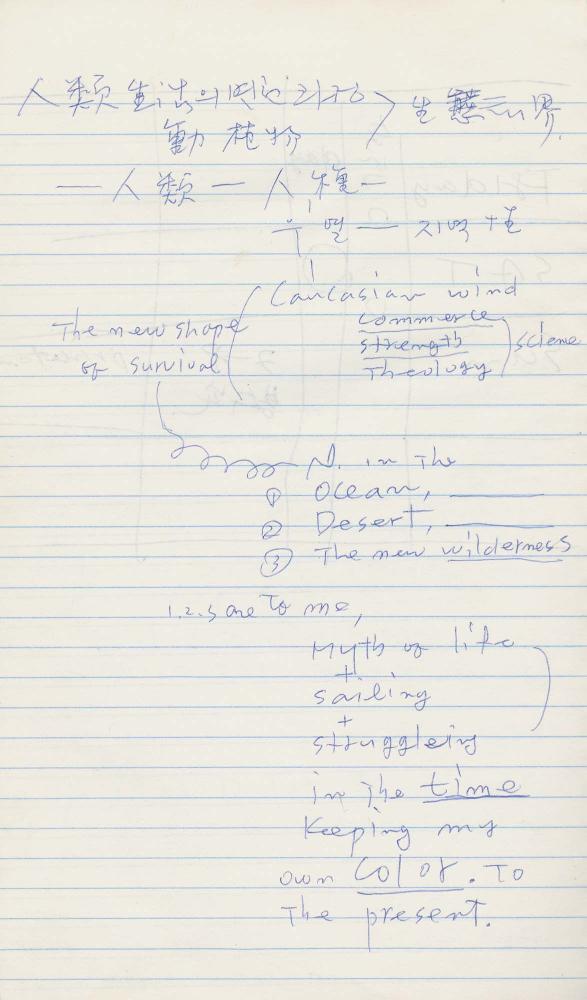 人類 生活의 변천과정
動植物 > 生態系界.
— 人類 — 人種 —
우열 — 지역 + 土
Caucasian wind
commerce
strength
Theology
science
The new shape
of survival
N. in The
① Ocean,
② Desert,
③ The new wilderness
1.2.3 are To me,
Myth of life
+
sailing
+
struggleing
in The time
Keeping my
own Color. To
The present.